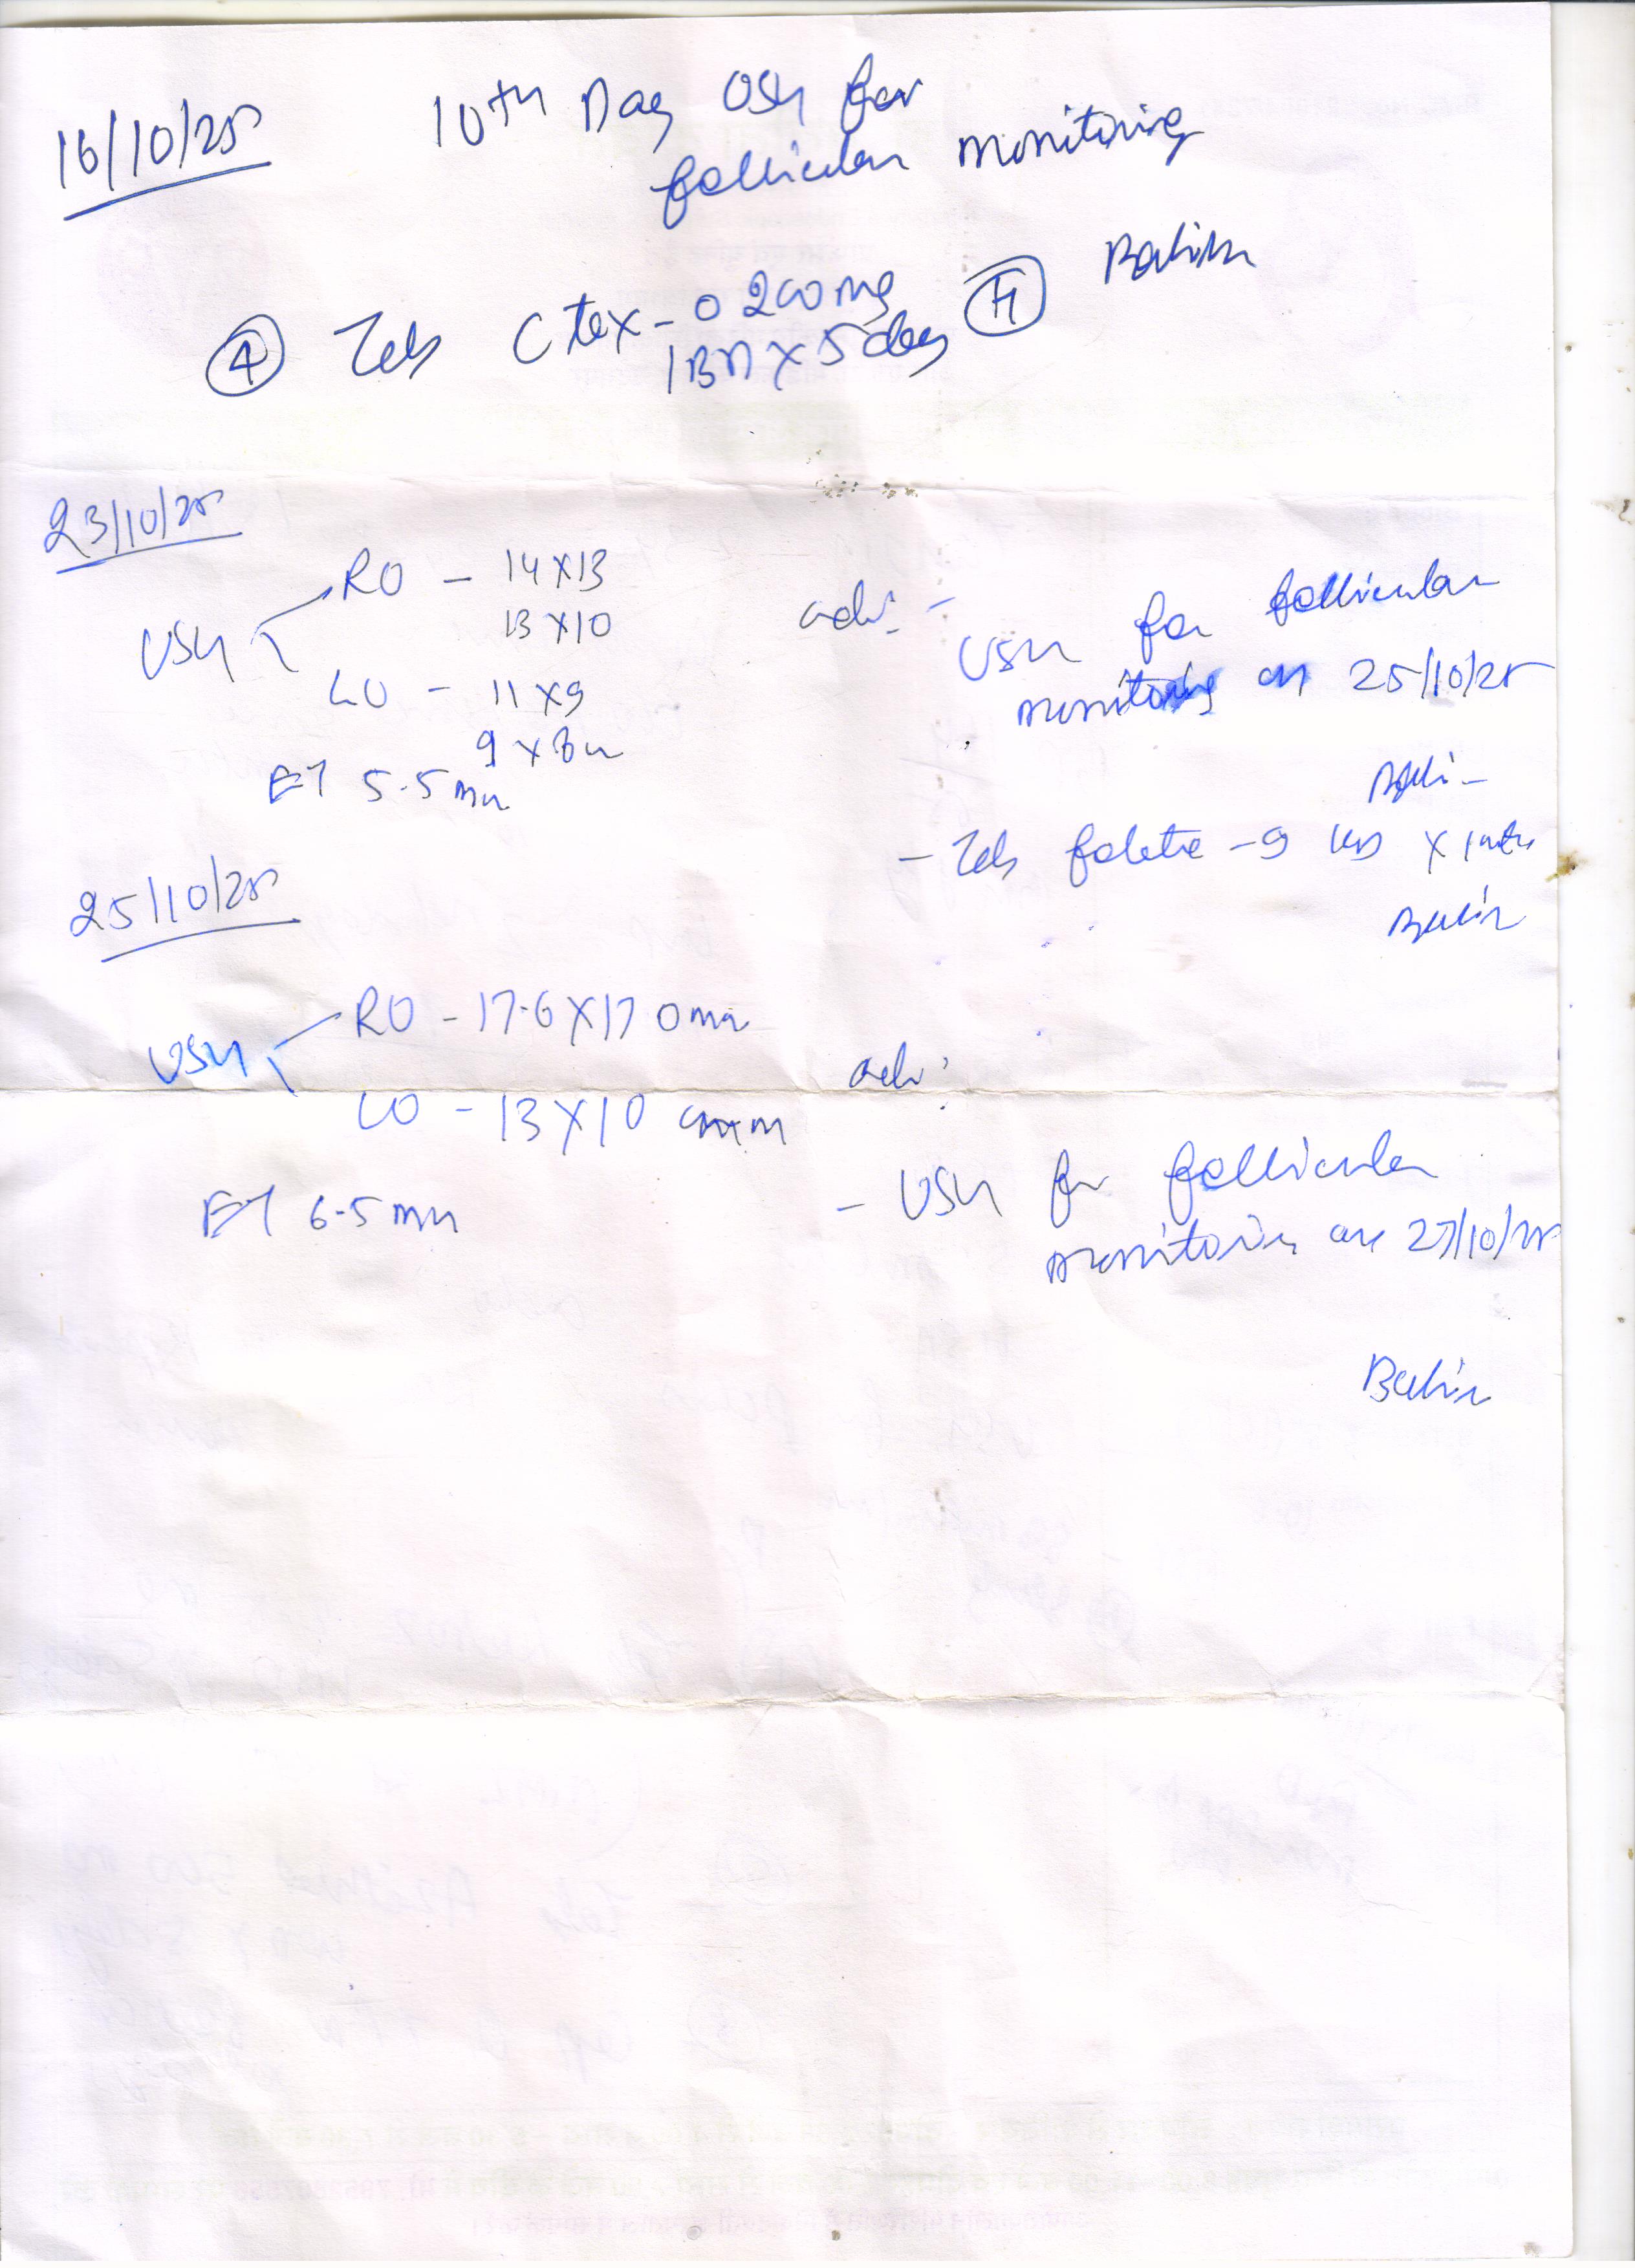 16/10/25
10th Day USG for
follicular monitoring
④ Tab Ctex-O 200mg
1BD x 5 days
23/10/25
USG
RO - 14 x 13
13 x 10
LO - 11 x 9
9 x 8 m
ET 5.5 mm
adv. -
USG for follicular
monitoring on 25/10/25
- Tab folete - 9
25/10/25
USG
RO - 17.6 x 17.0 mm
LO - 13 x 10 mm
ET 6.5 mm
adv:
- USG for follicular
monitoring on 27/10/25